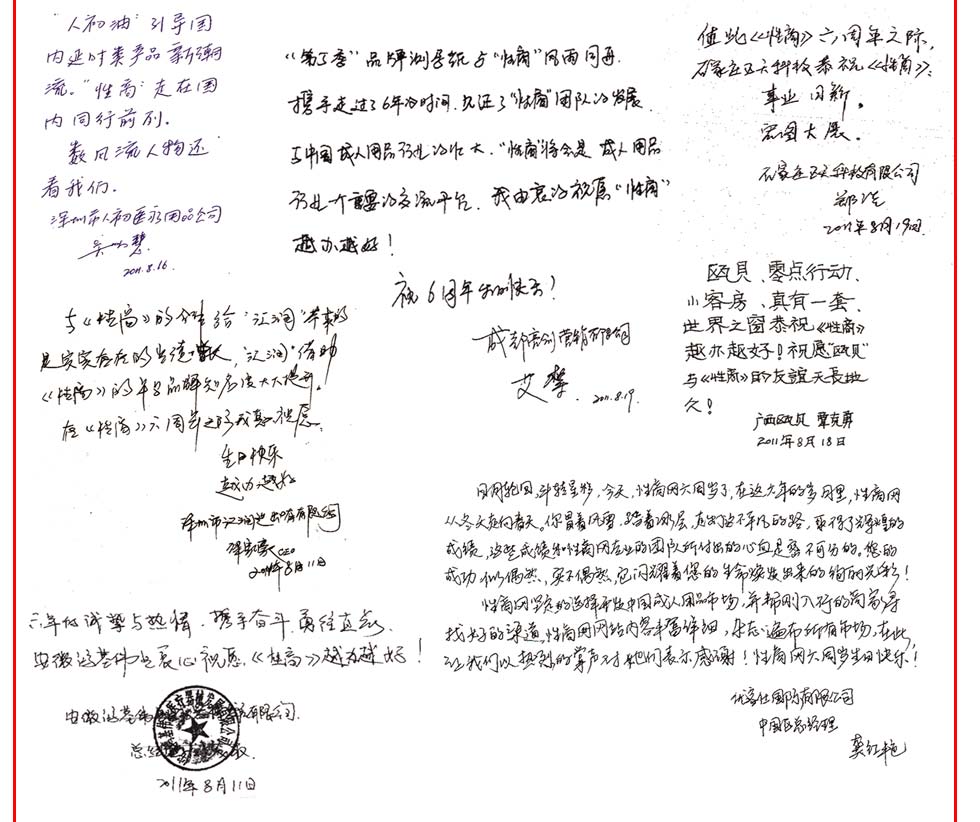 "人初油"引导国
内延时类产品新潮
流。"性商"走在国
内同行前列。
数风流人物还
看我们。
深圳市人初医疗用品公司
2011.8.16.
品牌测导纸与"性商"风雨同舟.
携手走过了6年的时间.见证了"性商"团队的发展
与中国成人用品行业的壮大."性商"将会是成人用品
行业一个重要的交流平台.我由衷的祝愿"性商"
越办越好!
祝6周年生日快乐!
2011.8.19.
值此《性商》六周年之际,
石家庄五天科技恭祝《性商》:
事业日新。
宏图大展。
石家庄五天科技有限公司
2011年8月19日
瓯贝、零点行动、
小客房、真有一套、
世界之窗恭祝《性商》
越办越好!祝愿"瓯贝"
与《性商》的友谊天長地
久!
广西瓯贝 覃克勇
2011年8月18日
与《性商》的合作给"汇润"带来的
是实实在在的业绩增长,"汇润"借助
《性商》的平台品牌知名度大大提升。
在《性商》六周年之际我真心祝愿:
生日快乐
越办越好
深圳市汇润进出口有限公司
CEO
2011年8月11日
六年的诚挚与热情、携手奋斗、勇往直前,
安徽 衷心祝愿,《性商》越办越好!
2011年8月11日
日月轮回,斗转星移,今天,性商网六周岁了,在这六年的岁月里,性商网
从冬天走向春天。你冒着风雪,踏着冰层,走出了不平凡的路,取得了辉煌的
成绩,这些成绩和性商网企业的团队所付出的心血是密不可分的,您的
成功似偶然,实不偶然,它闪耀着您的生命焕发出来的绚丽光彩!
性商网坚定的选择开发中国成人用品市场,并帮刚入行的商家寻
找好的渠道,性商网网站内容丰富详细,杂志遍布所有市场,在此
让我们以热烈的掌声对她们表示感谢!性商网六周岁生日快乐!
优客仕国际有限公司
中国区总经理
龚红艳